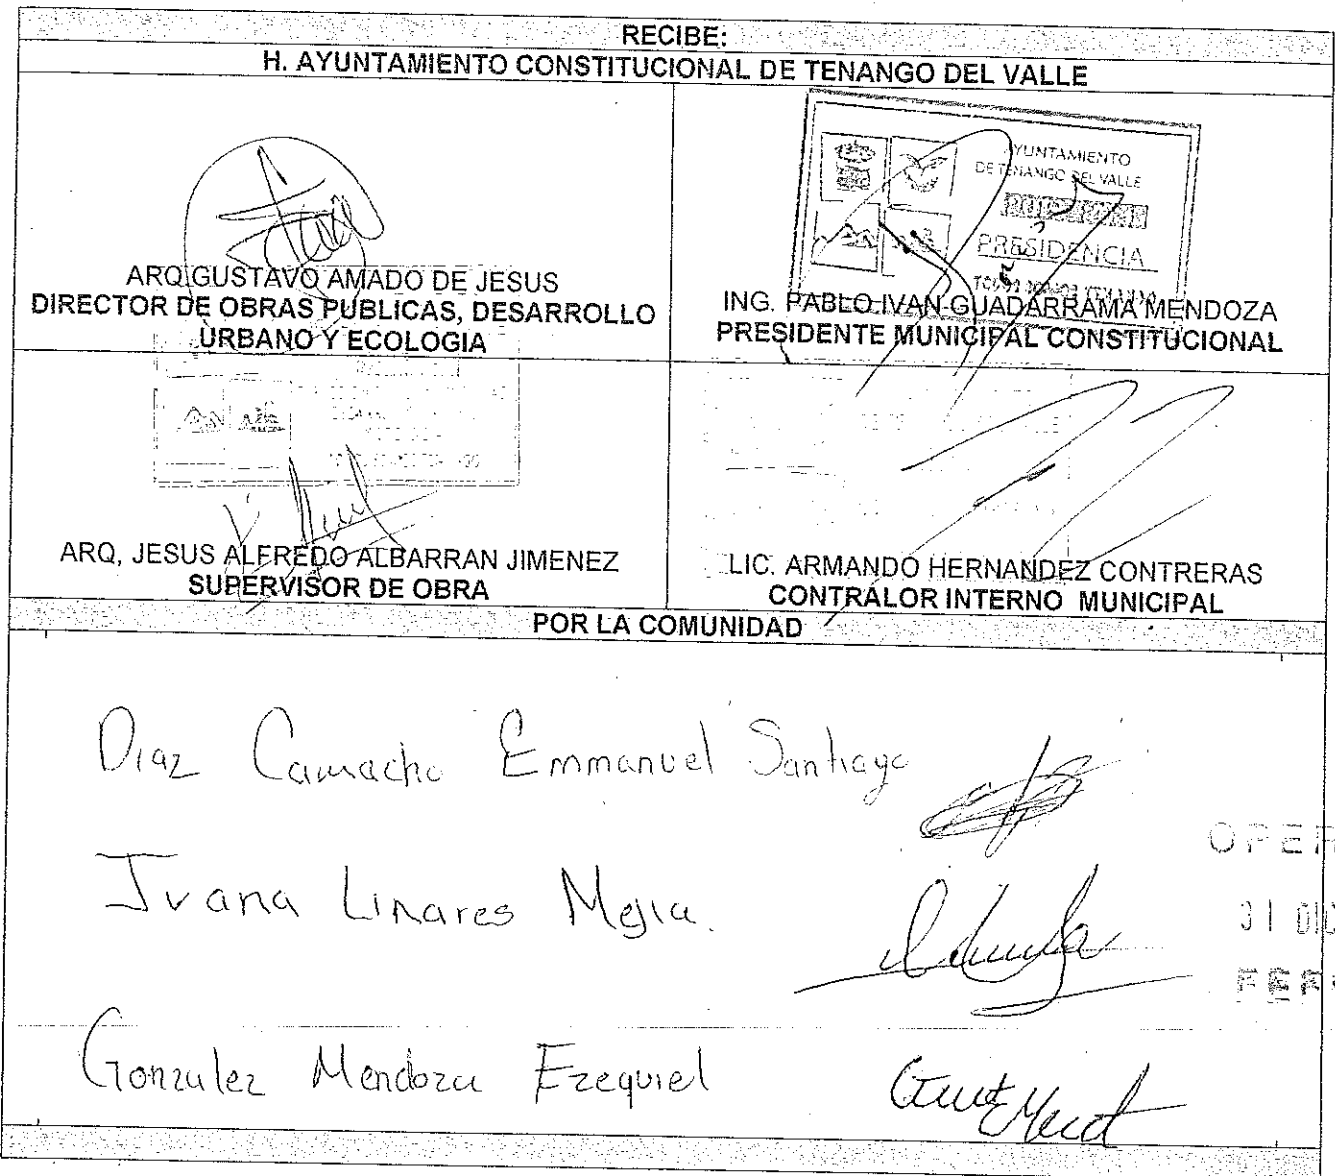 RECIBE:
H. AYUNTAMIENTO CONSTITUCIONAL DE TENANGO DEL VALLE
ARQ.GUSTAVO AMADO DE JESUS
DIRECTOR DE OBRAS PUBLICAS, DESARROLLO
URBANO Y ECOLOGIA
AYUNTAMIENTO
DE TENANGO DEL VALLE
PRESIDENCIA
ING. PABLO IVAN GUADARRAMA MENDOZA
PRESIDENTE MUNICIPAL CONSTITUCIONAL
ARQ, JESUS ALFREDO ALBARRAN JIMENEZ
SUPERVISOR DE OBRA
LIC. ARMANDO HERNANDEZ CONTRERAS
CONTRALOR INTERNO MUNICIPAL
POR LA COMUNIDAD
Diaz Camacho Emmanuel Santiago
Ivana Linares Mejia.
Gonzalez Mendoza Ezequiel
OPER
31 DIC